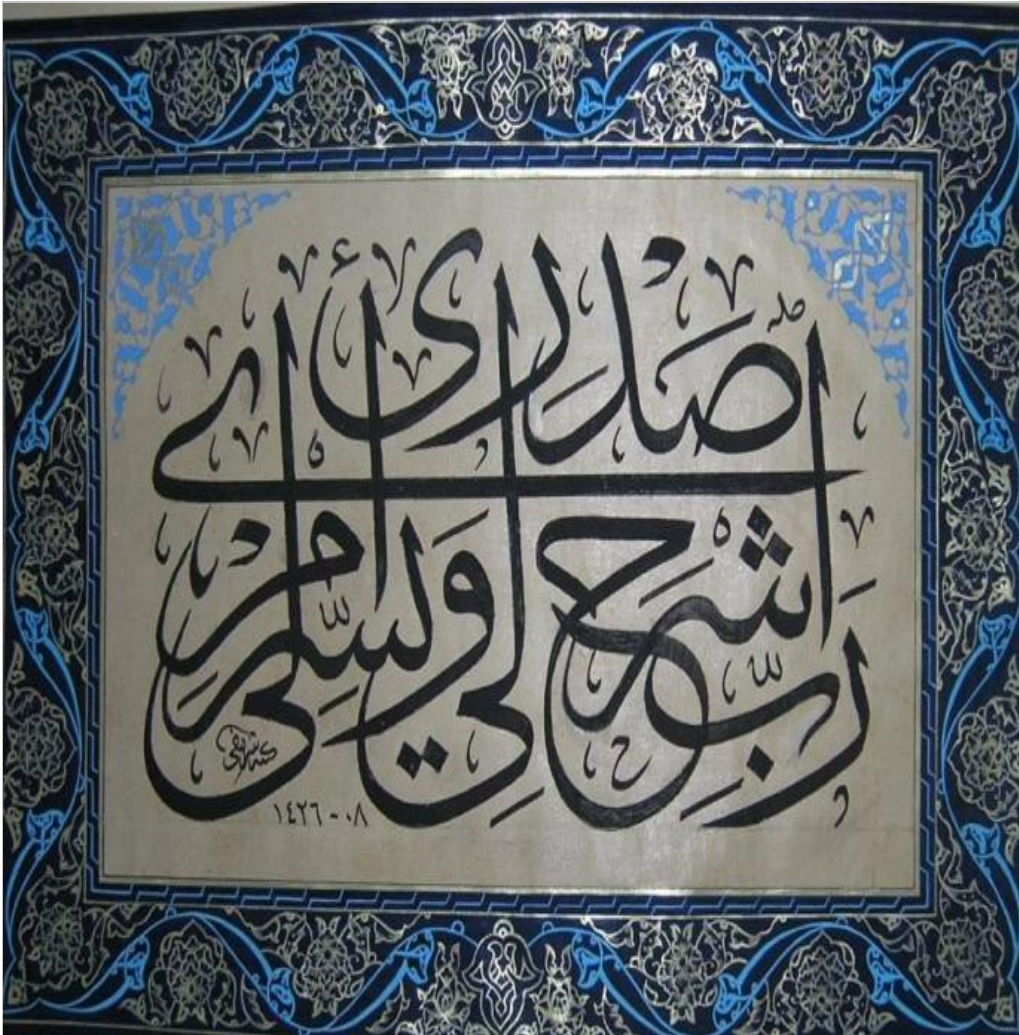 رَبِّ اشْرَحْ لِي صَدْرِي وَيَسِّرْ لِي أَمْرِي
١٤٢٦ - ٠٨